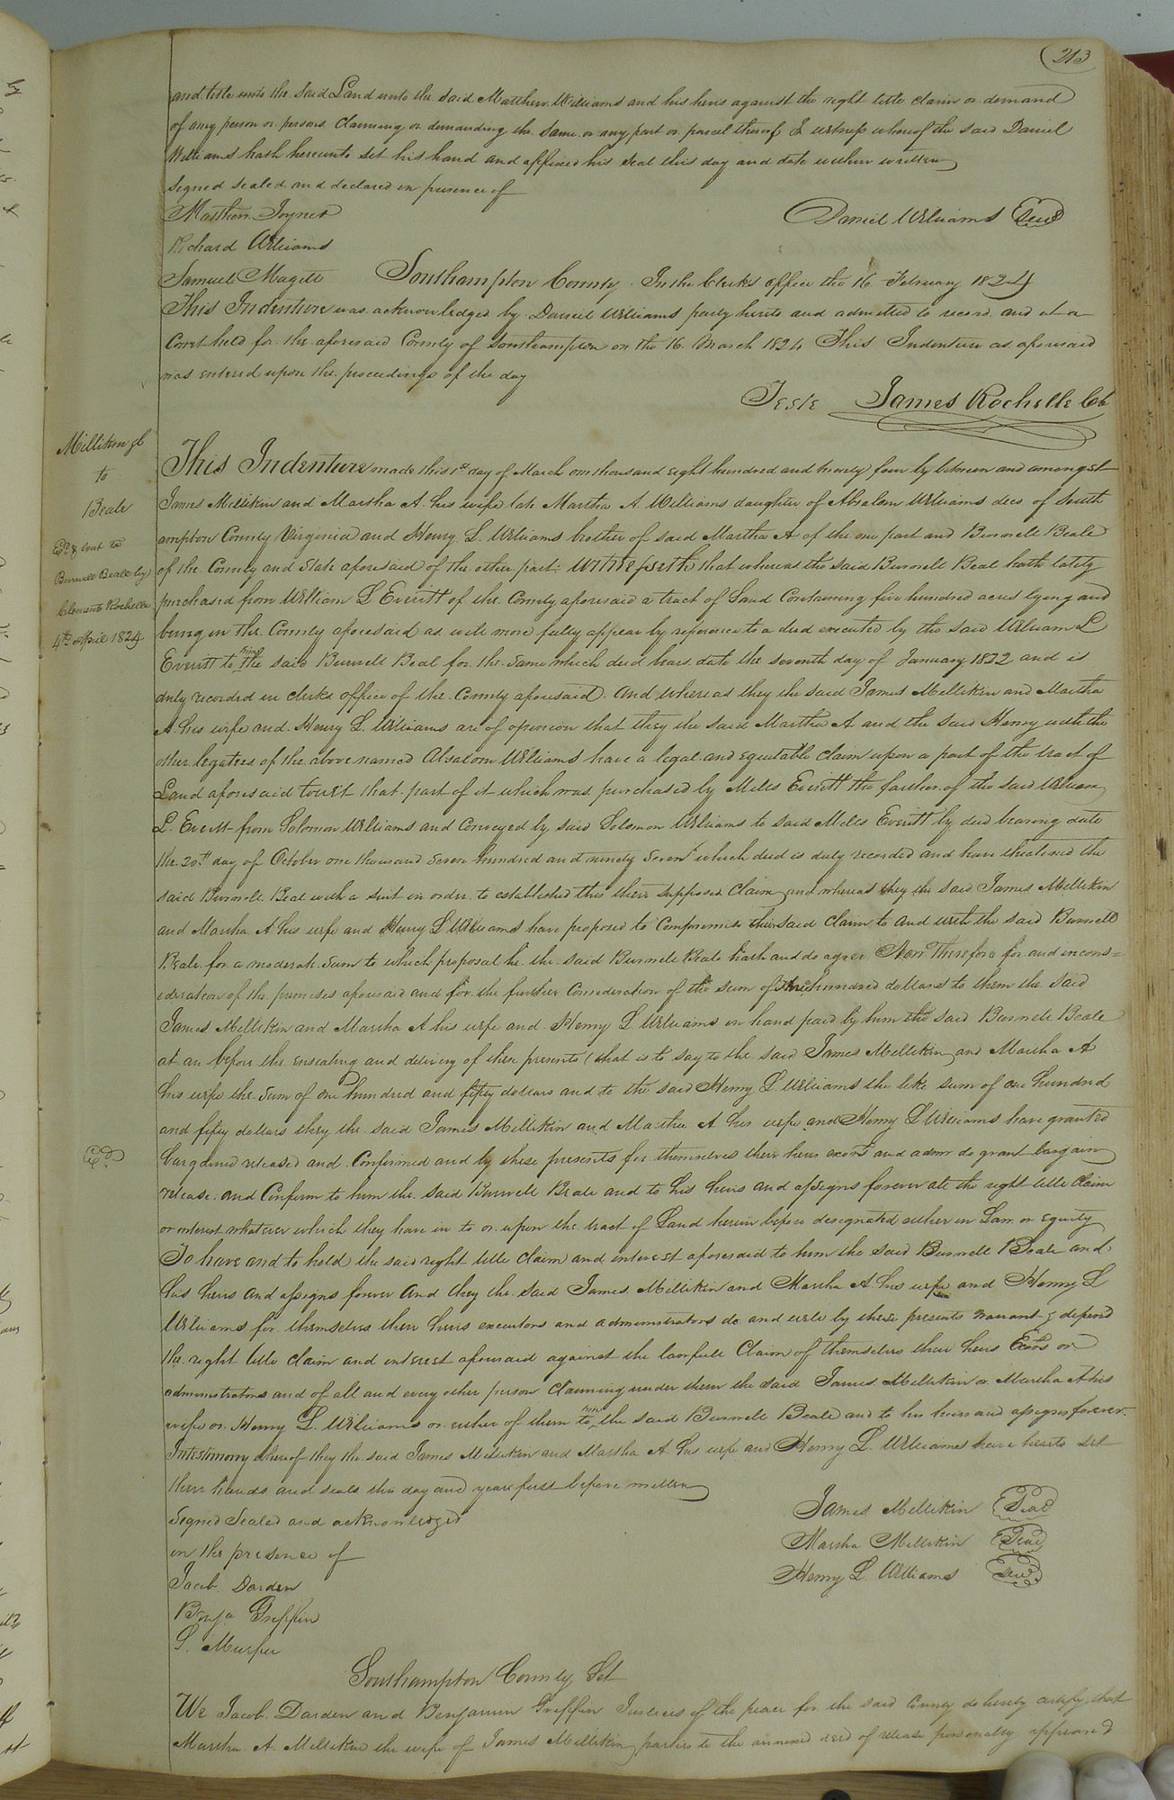 213
and title unto the said Land unto the said Matthew Williams and his heirs against the right title claim or demand
of any person or persons claiming or demanding the same or any part or parcel thereof In witness whereof the said Daniel
Williams hath hereunto set his hand and affixed his seal this day and date within written
Signed sealed and declared in presence of
Matthew Joyner
Daniel Williams Seal
Richard Williams
Samuel Magett Southampton County In the Clerks office the 16 February 1824
This Indenture was acknowledged by Daniel Williams party hereto and admitted to record and at a
Court held for the aforesaid County of Southampton on the 16 March 1824 This Indenture as aforesaid
was entered upon the proceedings of the day
Teste James Rochelle Clk
Millikin &c
to
Beale
Ex'd & sent to
Burwell Beale by
Clements Rochelle
4th April 1824
This Indenture made this 1st day of March one thousand eight hundred and twenty four by between and amongst
James Millikin and Martha A. his wife late Martha A Williams daughter of Absalom Williams decs of South
ampton County Virginia and Henry L. Williams brother of said Martha A of the one part and Burwell Beale
of the County and State aforesaid of the other part: Witnesseth that whereas the said Burwell Beal hath lately
purchased from William L Everitt of the County aforesaid a tract of Land Containing five hundred acres lying and
being in the County aforesaid as will more fully appear by reference to a deed executed by the said William L
Everitt to him the said Burwell Beal for the same which deed bears date the seventh day of January 1822 and is
duly recorded in clerks office of the County aforesaid. And whereas they the said James Millikin and Martha
A. his wife and Henry L. Williams are of opinion that they the said Martha A and the said Henry with the
other legatees of the above named Absalom Williams have a legal and equitable claim upon a part of the tract of
Land aforesaid towit that part of it which was purchased by Mills Everitt the father of the said William
L. Everitt from Solomon Williams and Conveyed by said Solomon Williams to said Mills Everitt by deed bearing date
the 20th day of October one thousand seven hundred and ninety seven which deed is duly recorded and have theatened the
said Burwell Beal with a suit in order to established this their supposed Claim and whereas they the said James Millikin
and Martha A his wife and Henry L Williams have proposed to Compromise their said Claim to and with the said Burwell
Beale for a moderate sum to which proposal he the said Burwell Beale hath and do agree Now Therefore for and in cons=
ideration of the premises aforesaid and for the further Consideration of the sum of three hundred dollars to them the said
James Millikin and Martha A his wife and Henry L Williams in hand paid by him the said Burwell Beale
at an before the ensealing and delivery of these presents (that is to say to the said James Millikin and Martha A
his wife the sum of one hundred and fifty dollars and to the said Henry L. Williams the like sum of one hundred
and fifty dollars they the said James Millikin and Martha A his wife and Henry L Williams have granted
bargained released and Confirmed and by these presents for themselves their heirs exors and admrs do grant bargain
release and Confirm to him the said Burwell Beale and to his heirs and assigns forever all the right title claim
or interest whatever which they have in to or upon the tract of Land herein before designated either in Law or equity
To have and to hold the said right title claim and interest aforesaid to him the said Burwell Beale and
his heirs and assigns forever And they the said James Millikin and Martha A his wife and Henry L
Williams for themselves their heirs executors and administrators do and will by these presents warrant & defend
the right title claim and interest aforesaid against the lawfull Claim of themselves their heirs Exors or
administrators and of all and every other person claiming under them the said James Millikin or Martha A his
wife or Henry L. Williams or either of them to him the said Burwell Beale and to his heirs and assigns forever.
In testimony whereof they the said James Millikin and Martha A his wife and Henry L. Williams have hereto set
their hands and seals the day and year first before written
Signed Sealed and acknowledged
James Millikin Seal
in the presence of
Martha Millikin Seal
Jacob Darden
Henry L Williams Seal
Benja Griffin
S. Murfee
Southampton County Sct
We Jacob Darden and Benjamin Griffin Justices of the peace for the said County do hereby certify that
Martha A. Millikin the wife of James Millikin parties to the annexed deed of release personally appeared